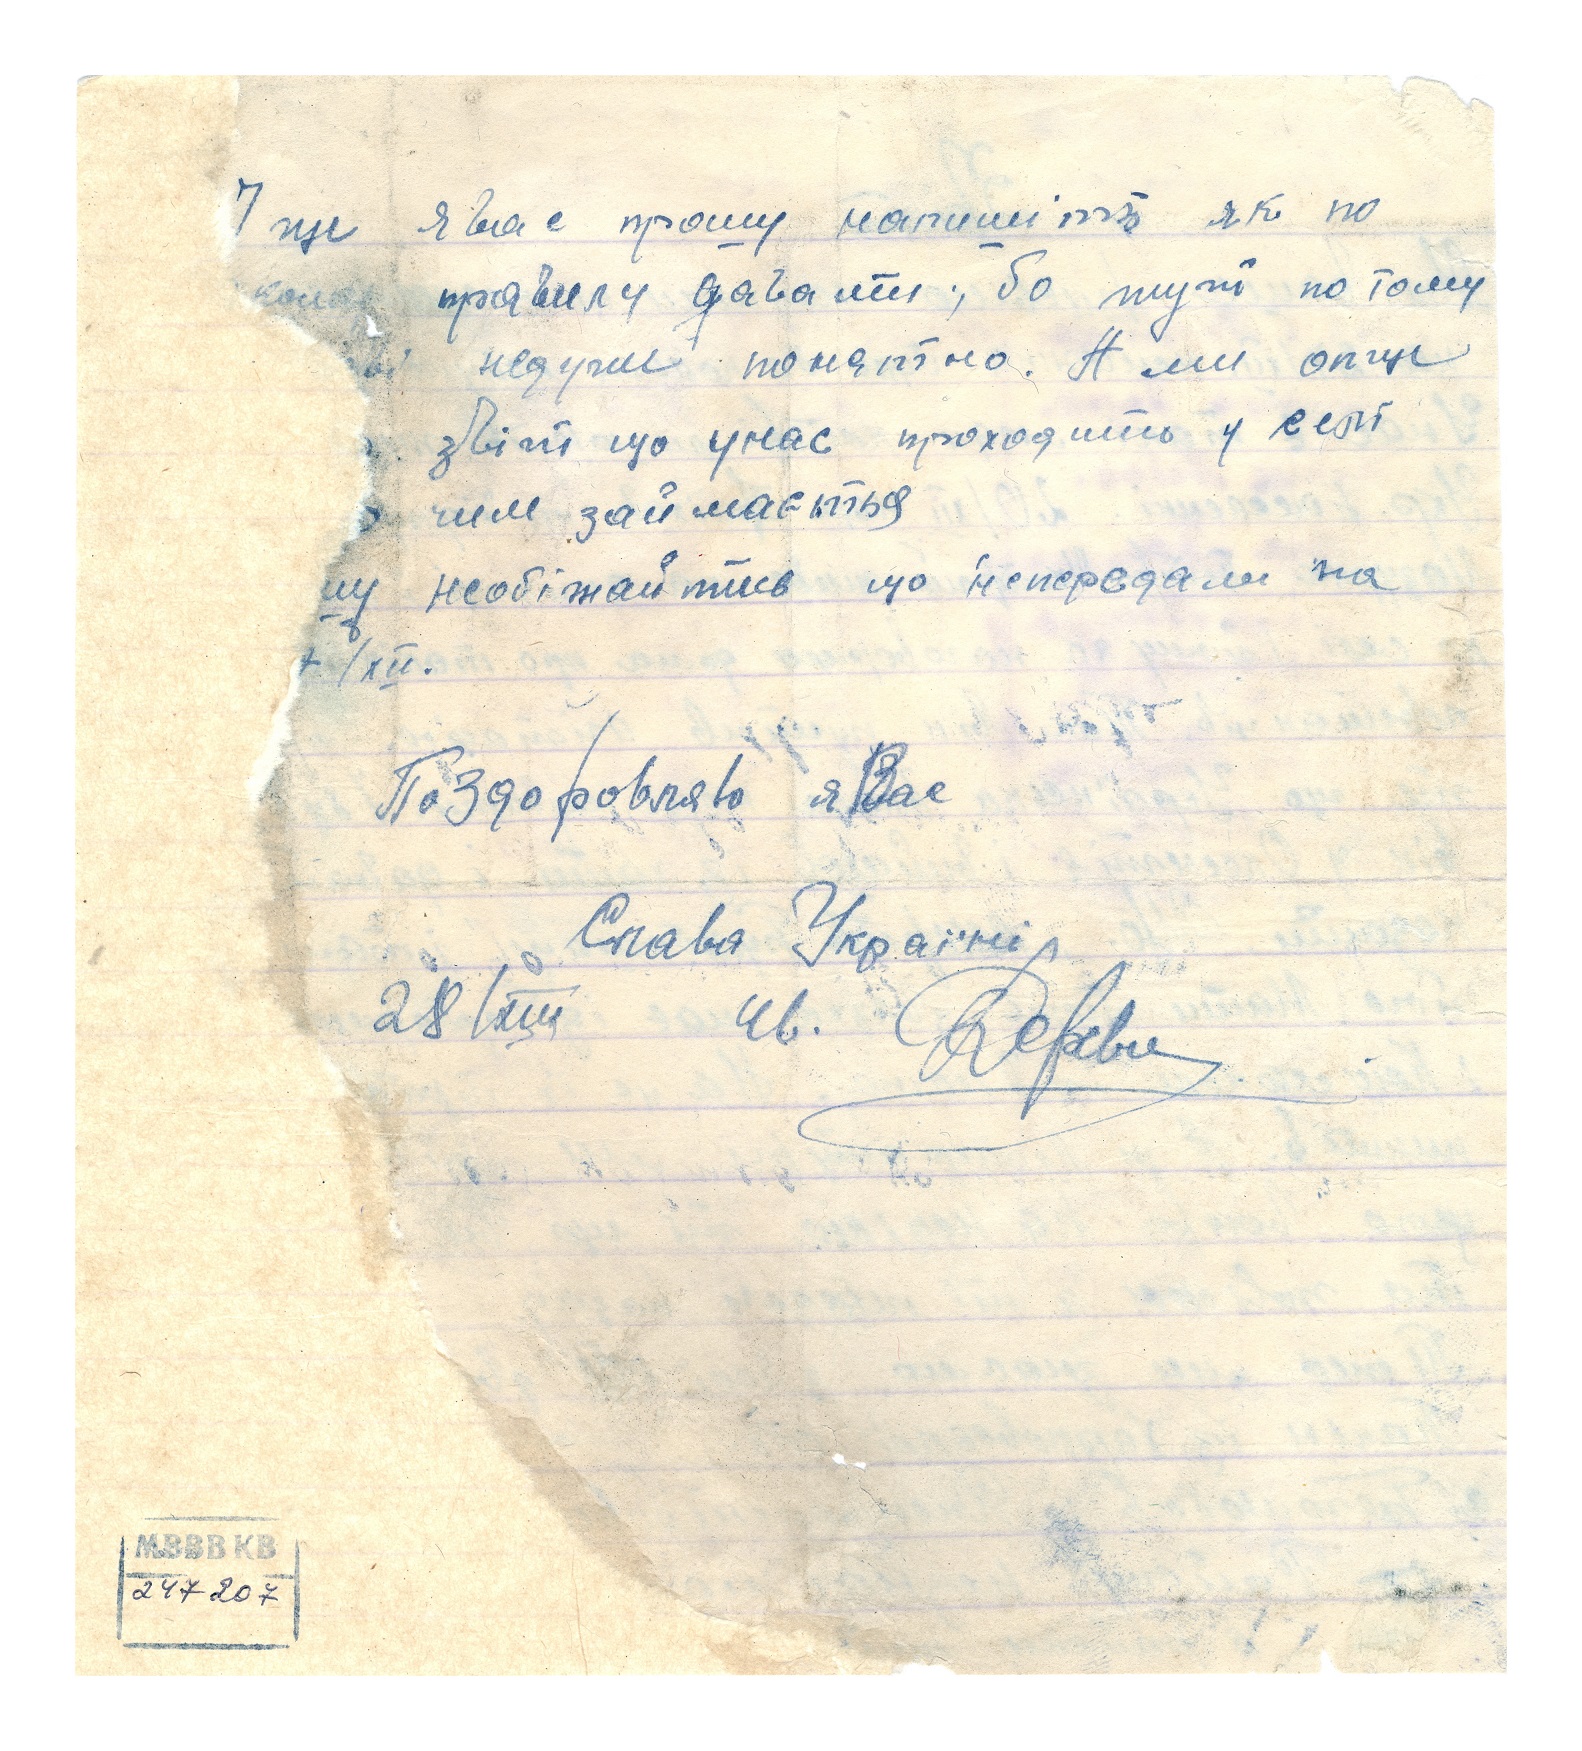 І ще я вас прошу напишіть як по
правилу давати, бо тут по тому
недуже понятно. А ми опще
звіт що унас проходить у селі
чим займається
необіжайтись що непередали на
/XII.
Поздоровляю я Вас
Слава Україні
28/XII 4в. Дерев
МВВВ КВ
247207